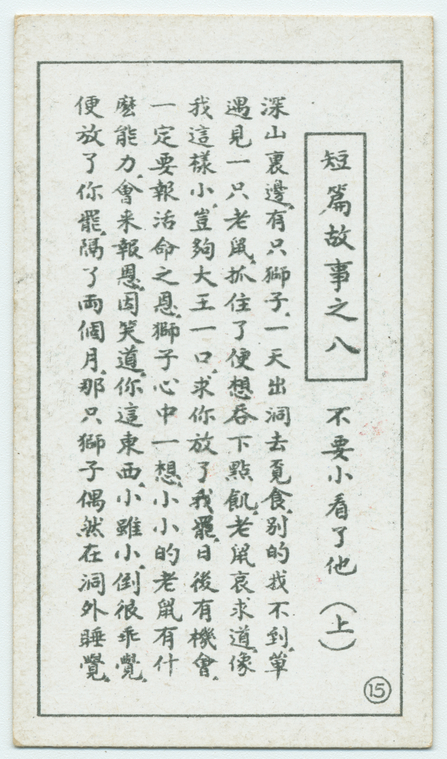 短篇故事之八 不要小看了他（上）
深山裏邊.有只獅子.一天出洞去覓食.別的找不到.單
遇見一只老鼠.抓住了便想吞下點飢.老鼠哀求道.像
我這樣小.豈夠大王一口.求你放了我罷.日後有機會.
一定要報活命之恩.獅子心中一想.小小的老鼠有什
麼能力.會来報恩.因笑道.你這東西.小雖小.倒很乖覺.
便放了你罷.隔了兩個月.那只獅子偶然在洞外睡覺.
15